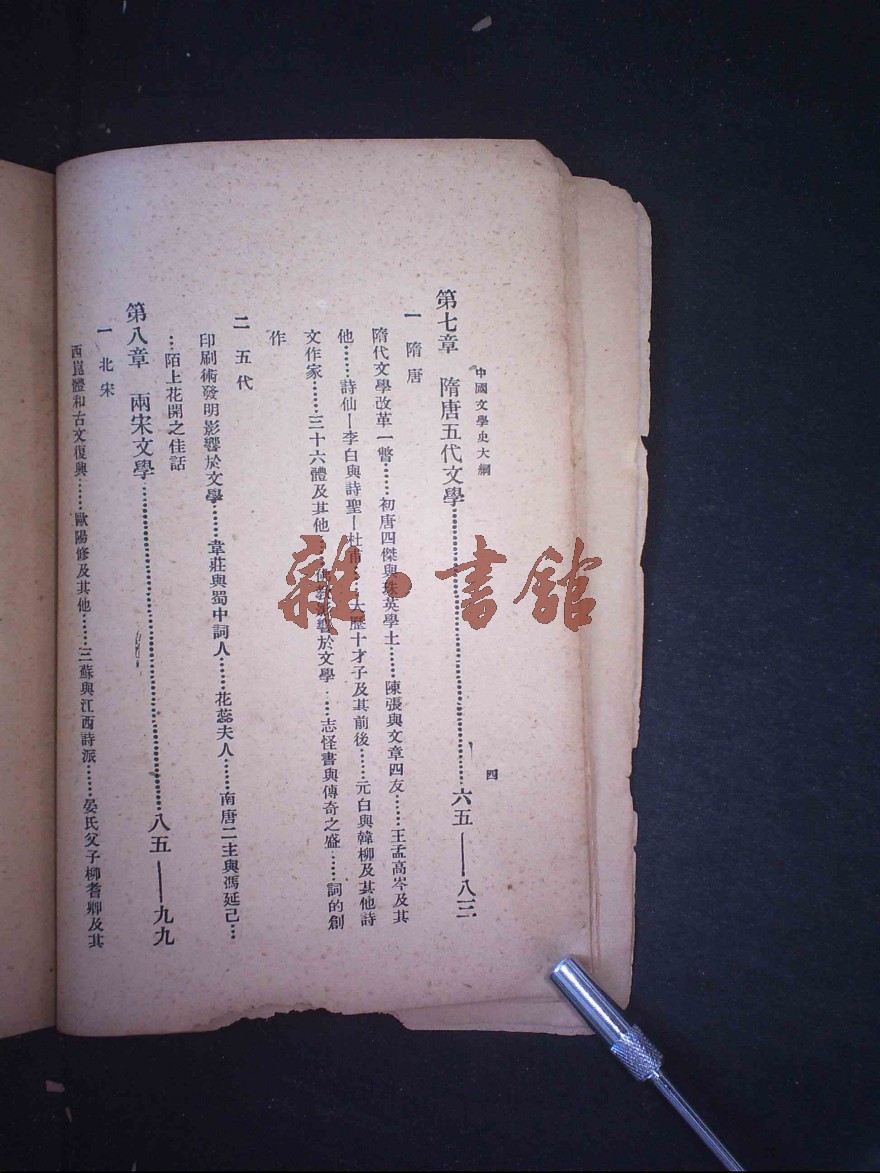 中國文學史大綱
四
第七章　隋唐五代文學……六五——八三
一　隋唐
隋代文學改革一瞥……初唐四傑與珠英學士……陳張與文章四友……王孟高岑及其
他……詩仙—李白與詩聖—杜甫……大歷十才子及其前後……元白與韓柳及其他詩
文作家……三十六體及其他……佛教影響於文學……志怪書與傳奇之盛……詞的創
作
二　五代
印刷術發明影響於文學……韋莊與蜀中詞人……花蕊夫人……南唐二主與馮延己…
…陌上花開之佳話
第八章　兩宋文學……八五——九九
一　北宋
西崑體和古文復興……歐陽修及其他……三蘇與江西詩派……晏氏父子柳耆卿及其
雜·書館